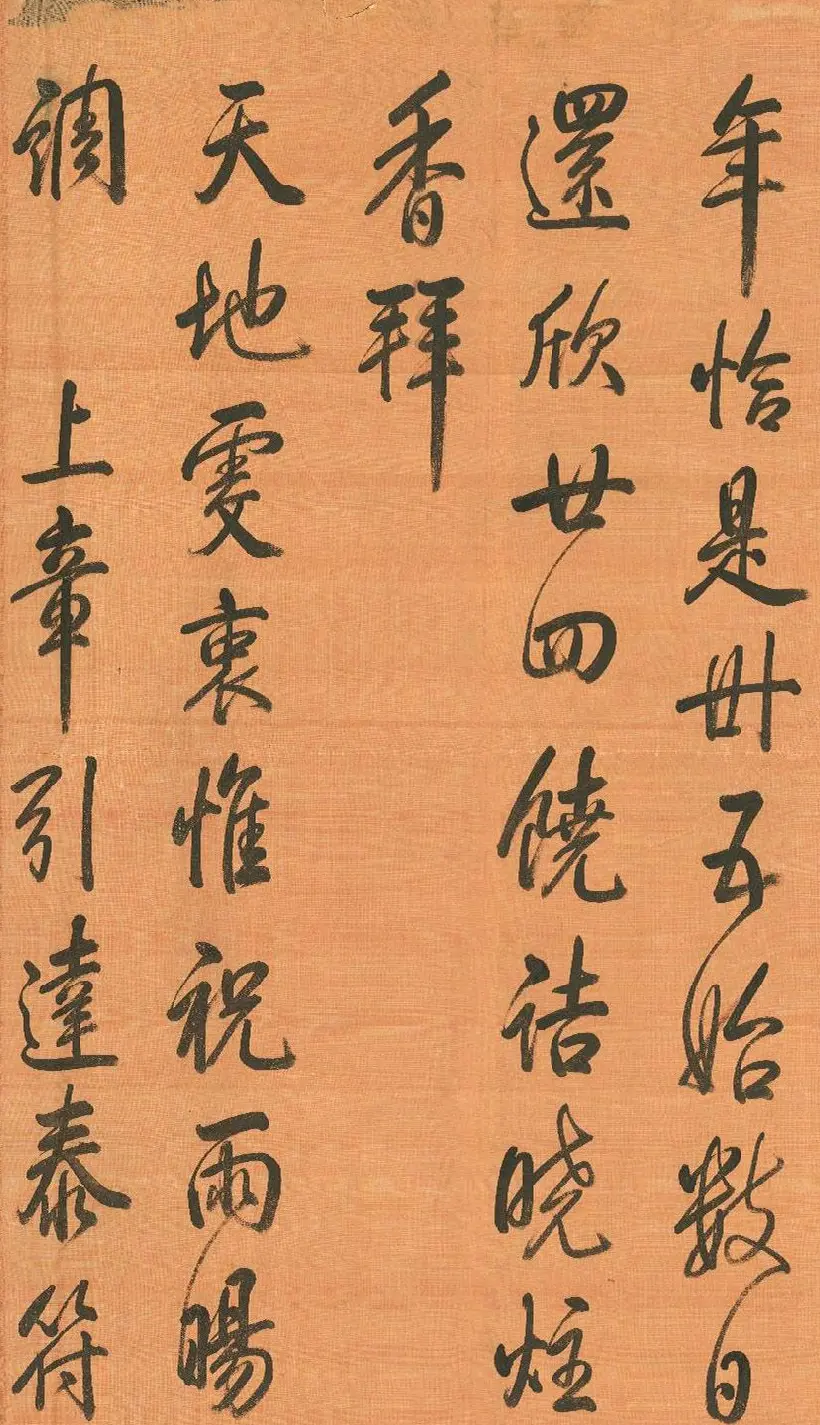 年恰是卅五始數日
還欣廿四饒詰曉炷
香拜
天地虔衷惟祝雨暘
調　上章引達泰符